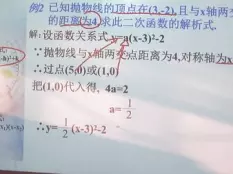 例2 已知抛物线的顶点在(3,-2),且与x轴两
的距离为4,求此二次函数的解析式.
解:设函数关系式 y=a(x-3)²-2
∵抛物线与x轴两交点距离为4,对称轴为x
∴过点(5,0)或(1,0)
把(1,0)代入得, 4a=2
a=1/2
∴y=1/2(x-3)²-2